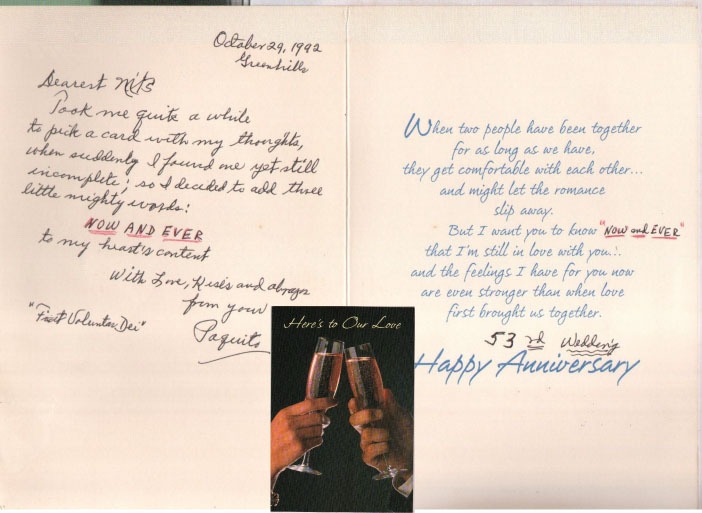 October 29, 1992
Greenhills
Dearest Nits
Took me quite a while
to pick a card with my thoughts,
when suddenly I found one yet still
incomplete; so I decided to add three
little mighty words:
NOW AND EVER
to my heart's content
With Love, Kisses and abrazos
from your
Paquito
"Fiat Voluntas Dei"
When two people have been together
for as long as we have,
they get comfortable with each other...
and might let the romance
slip away.
But I want you to know "NOW and EVER"
that I'm still in love with you...
and the feelings I have for you now
are even stronger than when love
first brought us together.
53rd Wedding
Happy Anniversary
Here's to Our Love